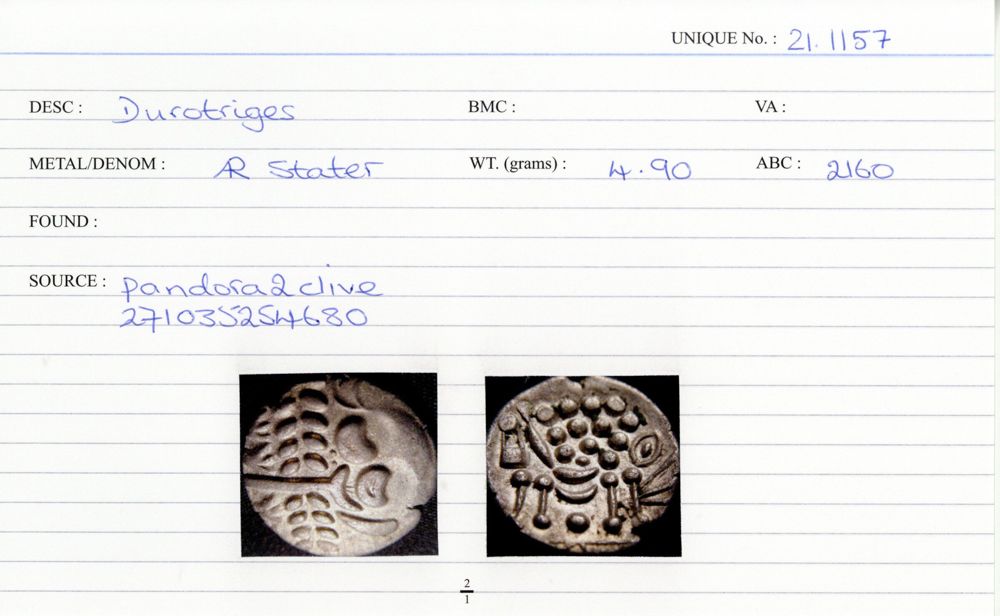 UNIQUE No. : 21.1157
DESC : Durotriges BMC : VA :
METAL/DENOM : AR Stater WT. (grams) : 4.90 ABC : 2160
FOUND :
SOURCE : pandora2clive
271035254680
2
1